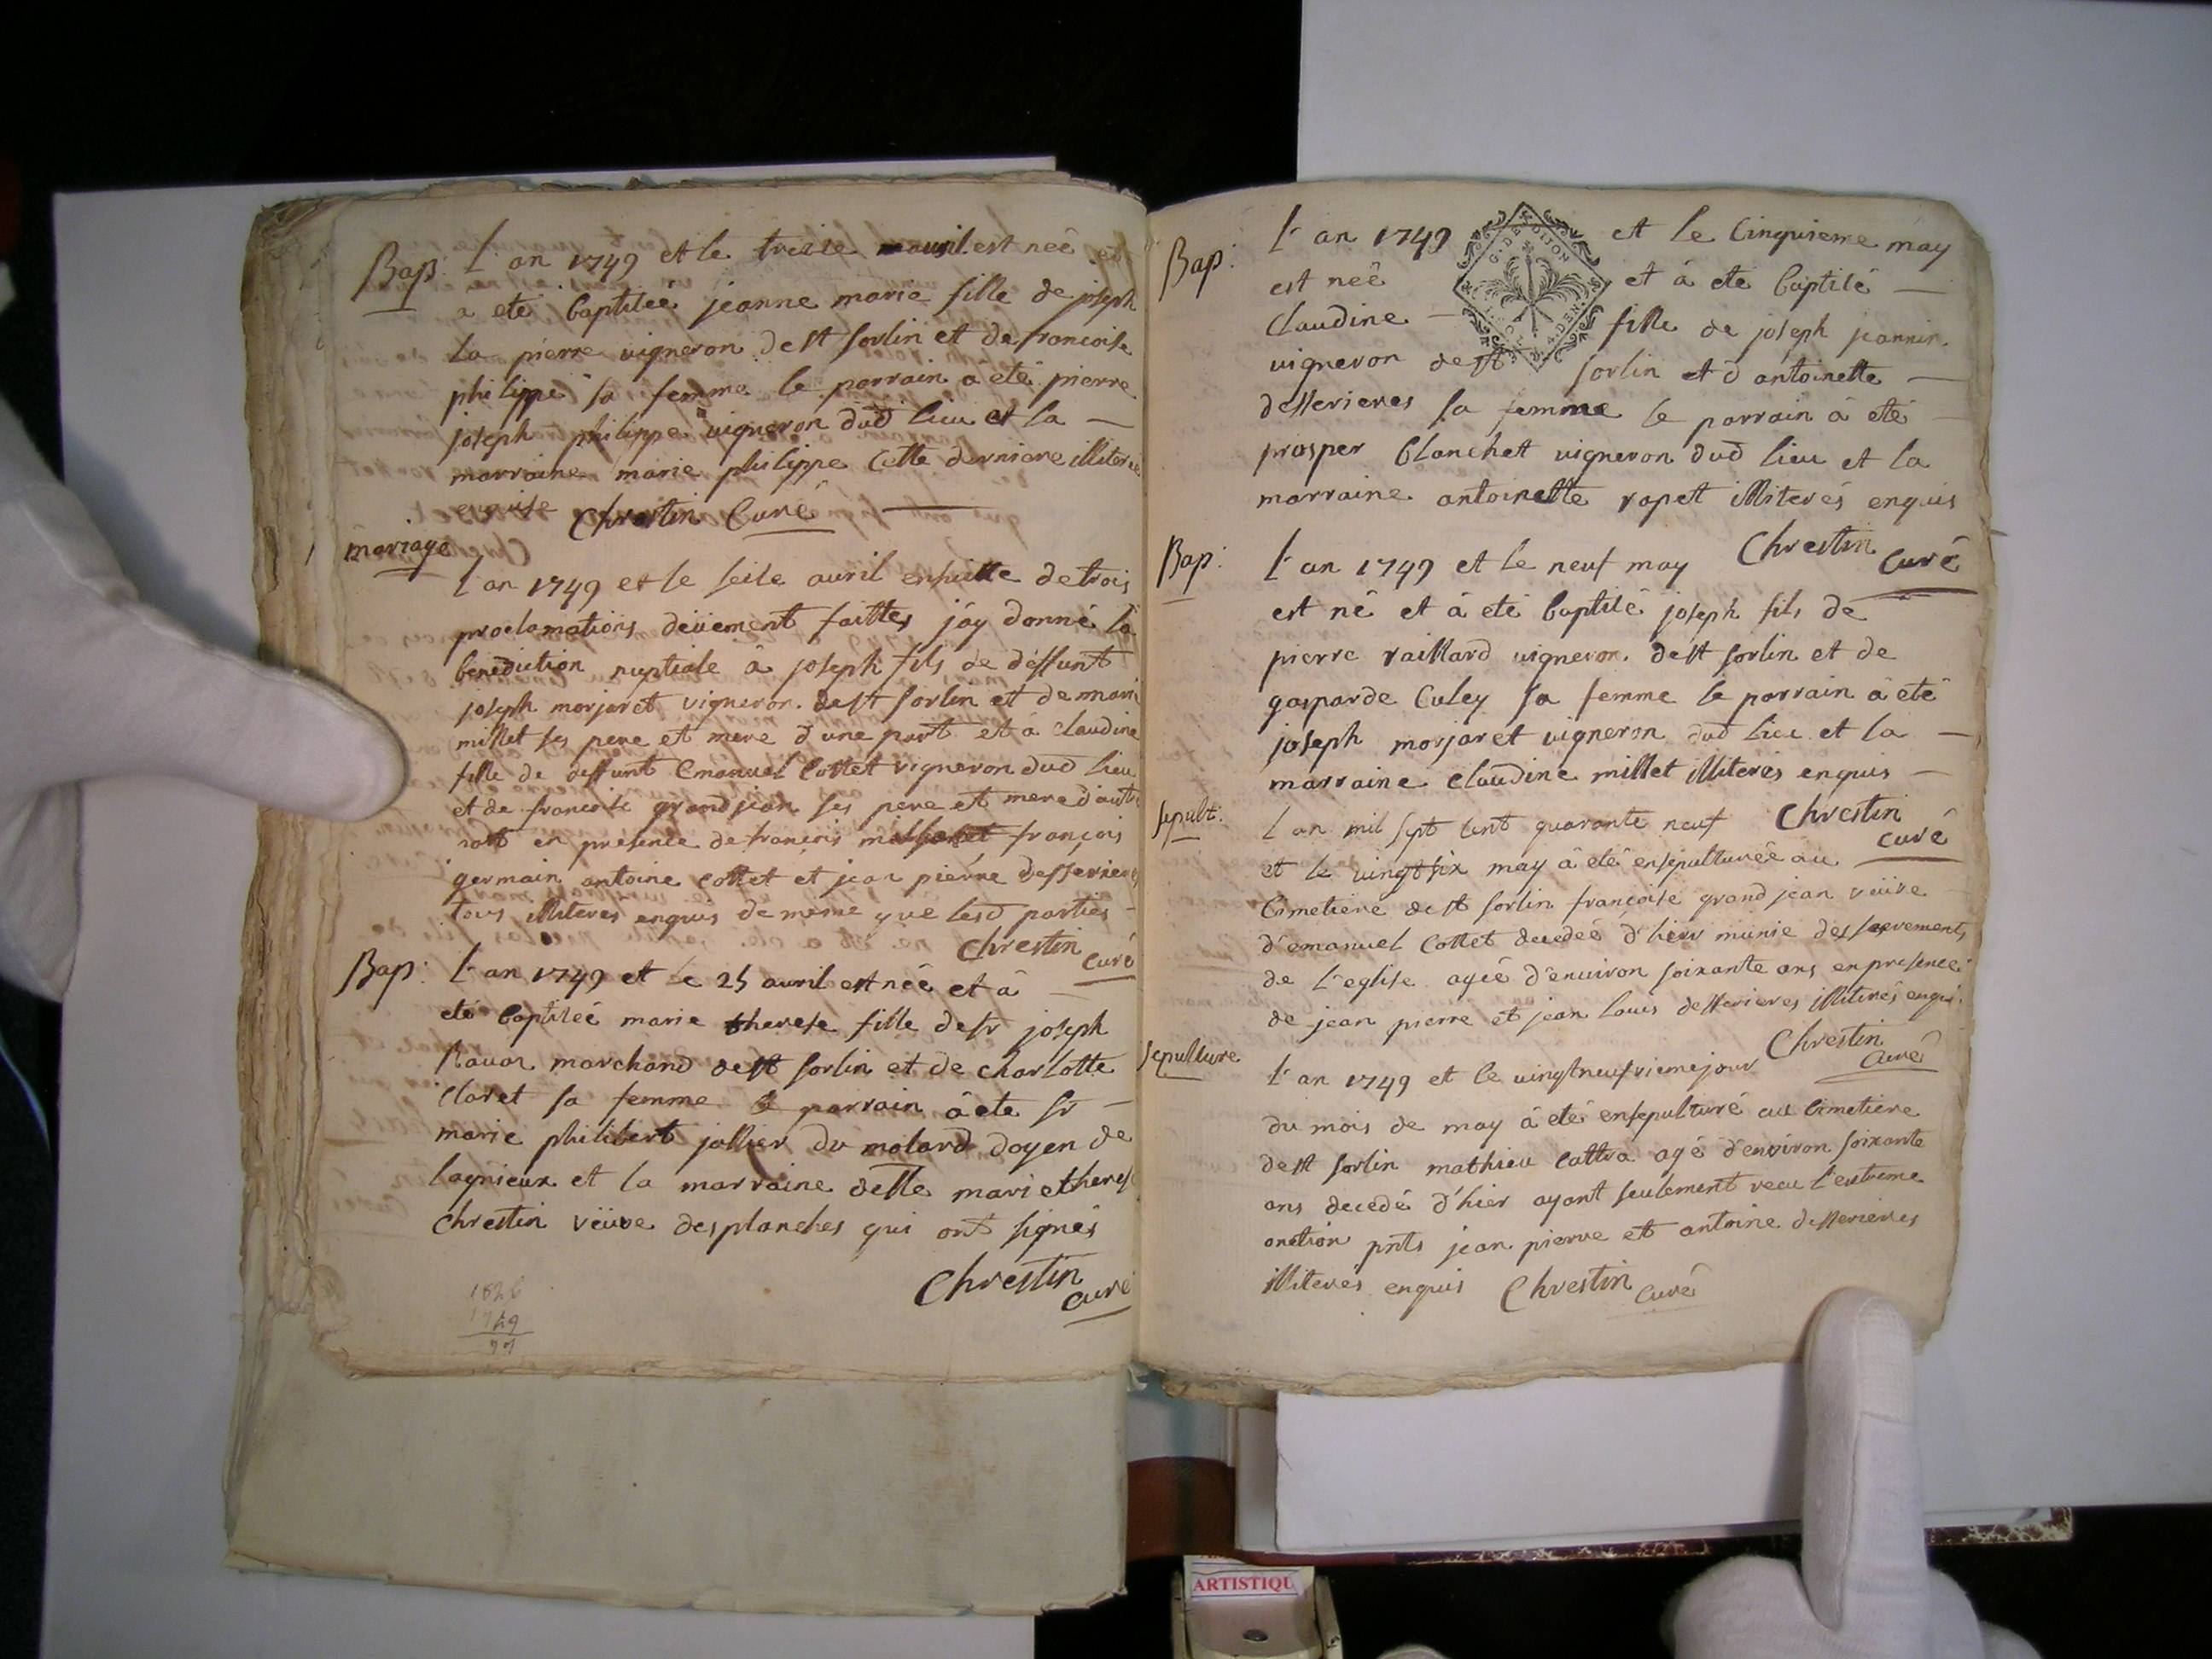 Bap: L'an 1749 et le treize avril est neé et
a eté baptiseé jeanne marie fille de joseph
la pierre vigneron de st sorlin et de françoise
philippe sa femme le parrain a eté pierre
joseph philippe vigneron dud lieu et la
marraine marie philippe cette derniere illiterée
enquise Chrestin Curé
mariage
L'an 1749 et le seise avril ensuitte de trois
proclamations düement faittes j'ay donné la
benediction nuptiale à joseph fils de deffunt
joseph morjaret vigneron de st sorlin et de marie
millet ses pere et mere d'une part et à claudine
fille de deffunt Emanuel Cottet vigneron dud lieu
et de françoise grandjean ses pere et mere d'autre
part en presence de françois françois
germain antoine cottet et jean pierre desserieres
tous illiteres enquis de meme que lesd parties
Chrestin curé
Bap: L'an 1749 et le 25 avril est neé et à
eté baptiseé marie therese fille de sr joseph
Ravar marchand de st sorlin et de charlotte
Claret sa femme le parrain à ete sr
marie philibert jollier du molard doyen de
lagnieux et la marraine delle marie therese
chrestin veüve desplanches qui ont signés
Chrestin curé
1826
1749
77
Bap: L'an 1749 et le Cinquieme may
est neé et à ete baptisé
Claudine fille de joseph jeannin
vigneron de st sorlin et d'antoinette
desserieres sa femme le parrain à eté
prosper blanchet vigneron dud lieu et la
marraine antoinette rapet illiterés enquis
Chrestin Curé
Bap: L'an 1749 et le neuf may
est né et à eté baptisé joseph fils de
pierre raillard vigneron de st sorlin et de
gasparde Culey sa femme le parrain à eté
joseph morjaret vigneron dud lieu et la
marraine claudine millet illiterés enquis
Chrestin curé
sepult: L'an mil sept cent quarante neuf
et le vingt six may à eté ensepultureé au
Cimetiere de st sorlin françoise grand jean veüve
d'emanuel Cottet decedeé d'hier munie des sacrements
de L'eglise ageé d'environ soixante ans en presence
de jean pierre et jean louis desserieres illiterés enquis
Chrestin Curé
sepulture L'an 1749 et le vingtneufvieme jour
du mois de may à eté ensepulturé au Cimetiere
de st sorlin mathieu cattra agé d'environ soixante
ans decedé d'hier ayant seulement recu l'extreme
onction pnts jean pierre et antoine desserieres
illiterés enquis Chrestin Curé
G. DE DIJON
ARTISTIQU